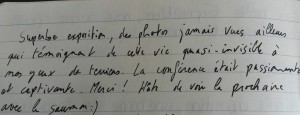 Superbe exposition, des photos jamais vues ailleurs
qui témoignent de cette vie quasi-invisible à
nos yeux de terriens. La conférence était passionnante
et captivante. Merci ! Hâte de voir la prochaine
avec le saumon :)